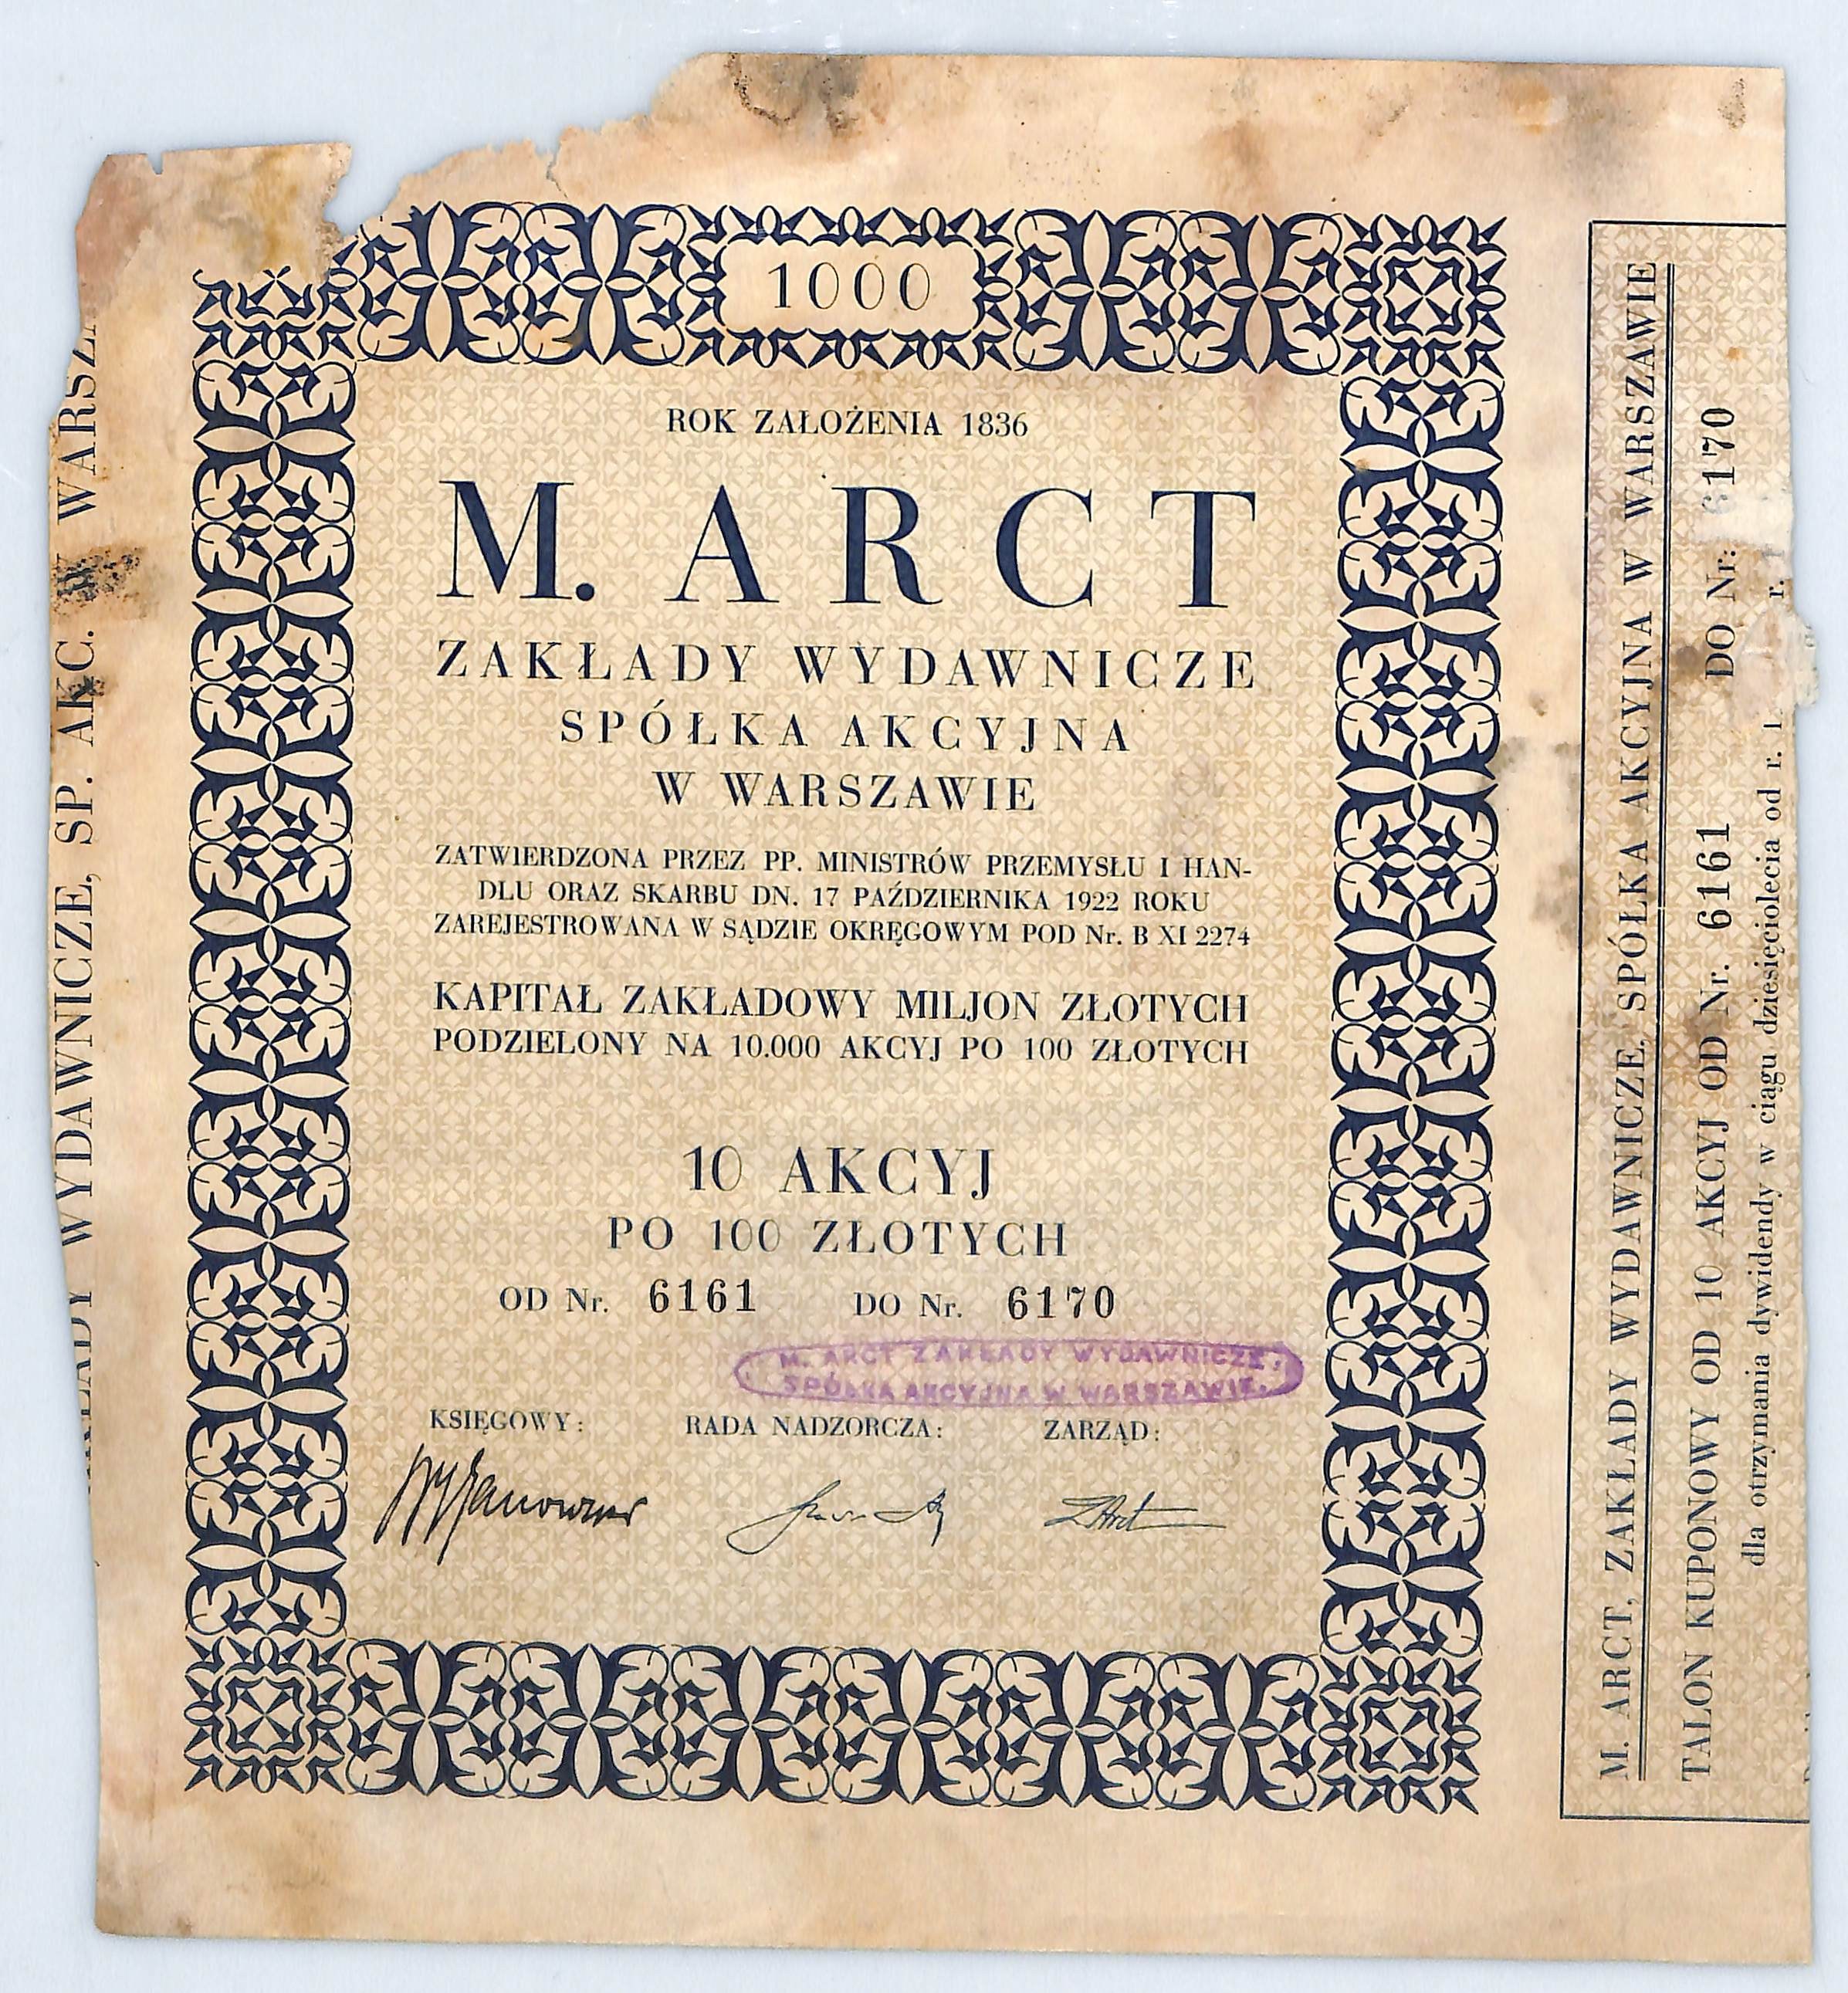 1000
ROK ZAŁOŻENIA 1836
M. ARCT
ZAKŁADY WYDAWNICZE
SPÓŁKA AKCYJNA
W WARSZAWIE
ZATWIERDZONA PRZEZ PP. MINISTRÓW PRZEMYSŁU I HAN-
DLU ORAZ SKARBU DN. 17 PAŹDZIERNIKA 1922 ROKU
ZAREJESTROWANA W SĄDZIE OKRĘGOWYM POD Nr. B XI 2274
KAPITAŁ ZAKŁADOWY MILJON ZŁOTYCH
PODZIELONY NA 10.000 AKCYJ PO 100 ZŁOTYCH
10 AKCYJ
PO 100 ZŁOTYCH
OD Nr. 6161 DO Nr. 6170
M. ARCT ZAKŁADY WYDAWNICZE,
SPÓŁKA AKCYJNA W WARSZAWIE.
KSIĘGOWY: RADA NADZORCZA: ZARZĄD:
WYDAWNICZE, SP. AKC. W
M. ARCT, ZAKŁADY WYDAWNICZE, SPÓŁKA AKCYJNA W WARSZAWIE
TALON KUPONOWY OD 10 AKCYJ OD Nr. 6161 DO Nr: 6170
dla otrzymania dywidendy w ciągu dziesięciolecia od r. r.